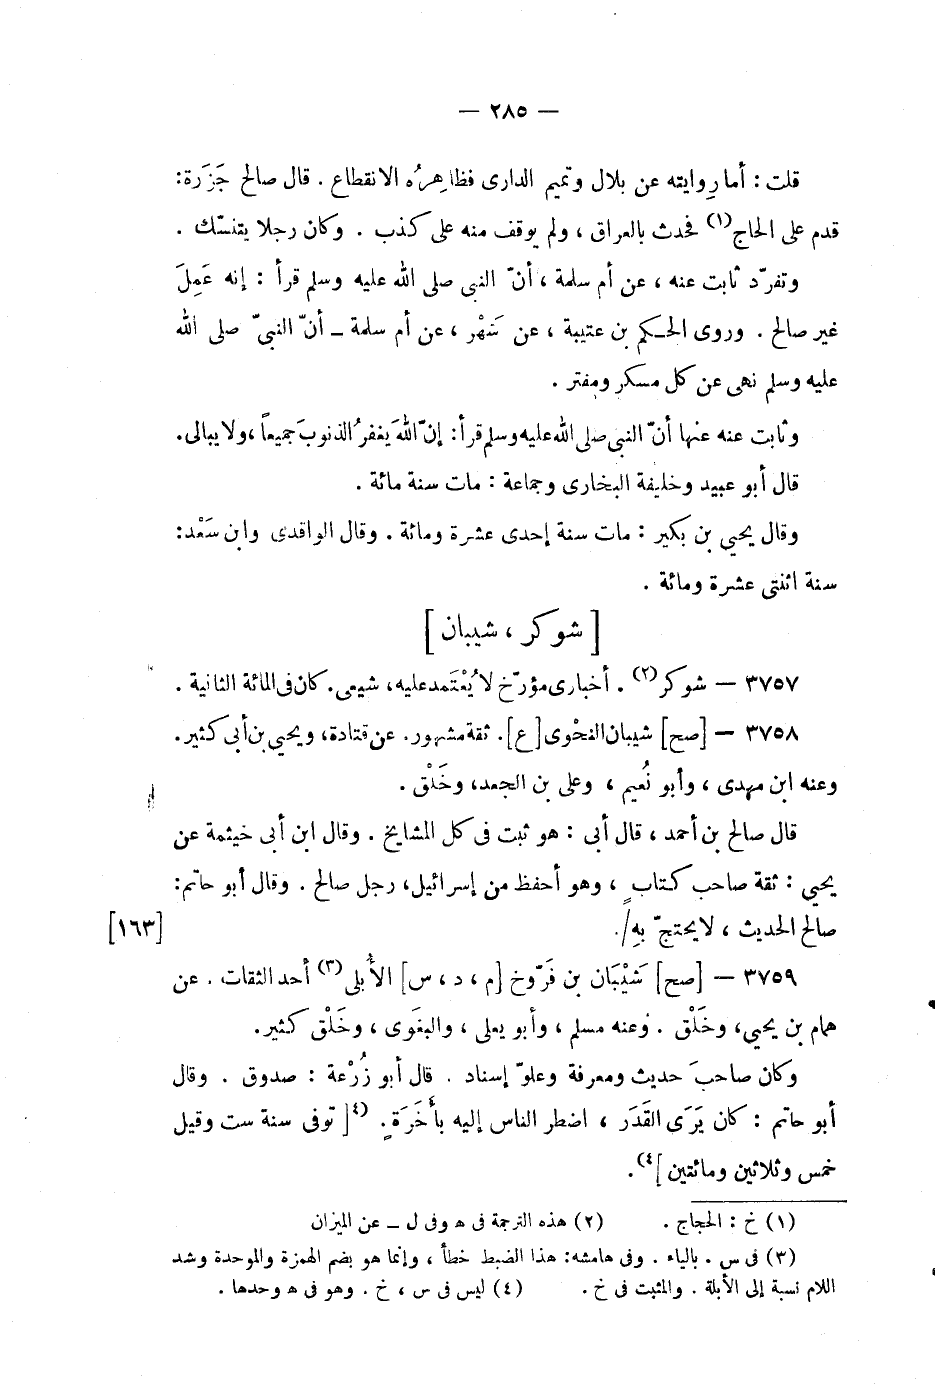 — ٢٨٥ —
قلت : أما روايته عن بلال وتميم الدارى فظاهِرُه الانقطاع . قال صالح جَزَرة:
قدم على الحاج(١) فحدث بالعراق ، ولم يوقف منه على كذب . وكان رجلا يتنسّك .
وتفرّد ثابت عنه ، عن أم سلمة ، أنّ النبى صلى الله عليه وسلم قرأ : إنه عَمِلَ
غير صالح . وروى الحكم بن عتيبة ، عن شَهْر ، عن أم سلمة ـ أنّ النبىّ صلى الله
عليه وسلم نهى عن كل مسكر ومفتر .
وثابت عنه عنها أنّ النبى صلى الله عليه وسلم قرأ : إنّ اللهَ يغفرُ الذنوبَ جميعاً ، ولا يبالى.
قال أبو عبيد وخليفة البخارى وجماعة : مات سنة مائة .
وقال يحيى بن بكير : مات سنة إحدى عشرة ومائة . وقال الواقدى وابن سَعْد:
سنة اثنتى عشرة ومائة .
[ شوكر ، شيبان ]
٣٧٥٧ — شوكر(٢) . أخبارى مؤرّخ لا يُعْتَمد عليه، شيعى. كان فى المائة الثانية .
٣٧٥٨ — [صح] شيبان النحْوى [ع]. ثقة مشهور. عن قتادة، ويحيى بن أبى كثير.
وعنه ابن مهدى ، وأبو نُعيم ، وعلى بن الجعد، وخَلْق .
قال صالح بن أحمد ، قال أبى : هو ثبت فى كل المشايخ . وقال ابن أبى خيثمة عن
يحيى : ثقة صاحب كتابٍ ، وهو أحفظ من إسرائيل، رجل صالح . وقال أبو حاتم:
صالح الحديث ، لا يحتجّ به/. [١٦٣]
٣٧٥٩ — [صح] شَيْبَان بن فَرّوخ [م ، د ، س] الأُبلى(٣) أحد الثقات . عن
همام بن يحيى، وخَلْق . وعنه مسلم ، وأبو يعلى ، والبغَوى ، وخَلْق كثير.
وكان صاحبَ حديث ومعرفة وعلوّ إسناد . قال أبو زُرْعة : صدوق . وقال
أبو حاتم : كان يَرَى القَدَر ، اضطر الناس إليه بأَخَرَةٍ. (٤[ توفى سنة ست وقيل
خمس وثلاثين ومائتين ]٤).
(١) خ : الحجاج . (٢) هذه الترجمة فى ه وفى ل ـ عن الميزان
(٣) فى س . بالياء . وفى هامشه: هذا الضبط خطأ ، وإنما هو بضم الهمزة والموحدة وشد
اللام نسبة إلى الأبلة . والمثبت فى خ . (٤) ليس فى س ، خ . وهو فى ه وحدها .